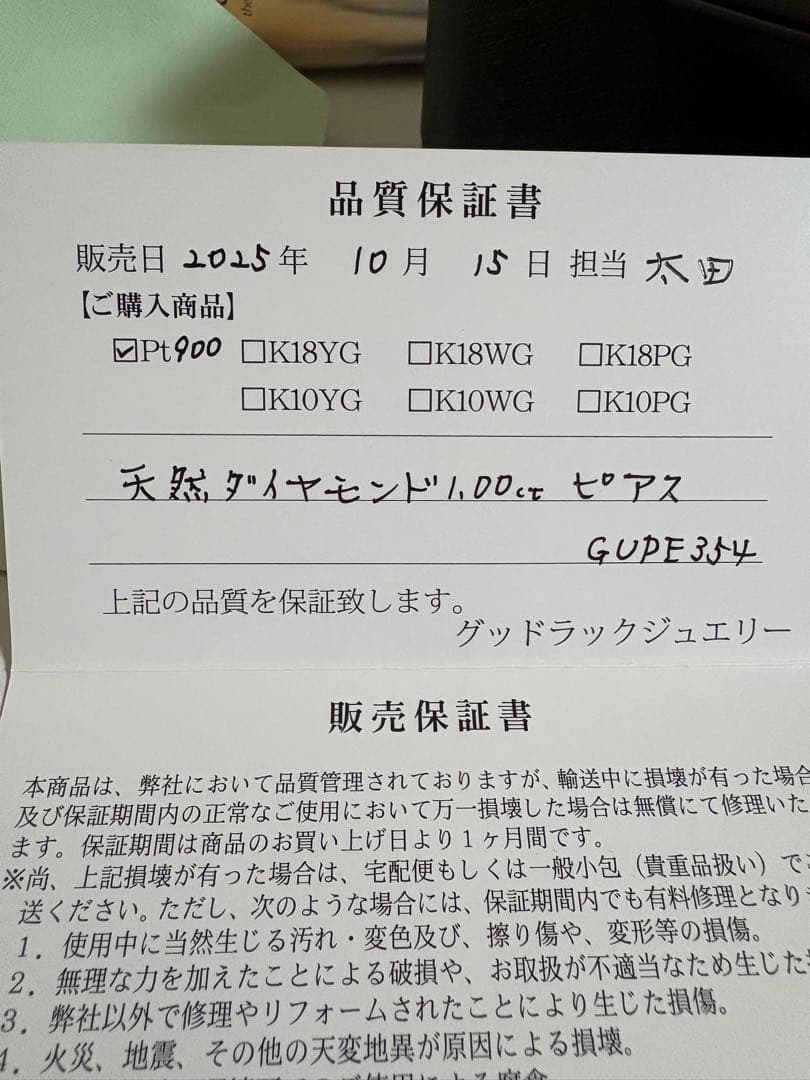 品質保証書
販売日 2025年 10月 15日 担当 太田
【ご購入商品】
☑Pt900 □K18YG □K18WG □K18PG
□K10YG □K10WG □K10PG
天然ダイヤモンド1.00ct ピアス
GUPE354
上記の品質を保証致します。
グッドラックジュエリー
販売保証書
本商品は、弊社において品質管理されておりますが、輸送中に損壊が有った場合
及び保証期間内の正常なご使用において万一損壊した場合は無償にて修理いた
ます。保証期間は商品のお買い上げ日より1ヶ月間です。
※尚、上記損壊が有った場合は、宅配便もしくは一般小包（貴重品扱い）で
送ください。ただし、次のような場合には、保証期間内でも有料修理となり
1．使用中に当然生じる汚れ・変色及び、擦り傷や、変形等の損傷。
2．無理な力を加えたことによる破損や、お取扱が不適当なため生じた
3．弊社以外で修理やリフォームされたことにより生じた損傷。
4．火災、地震、その他の天変地異が原因による損壊。